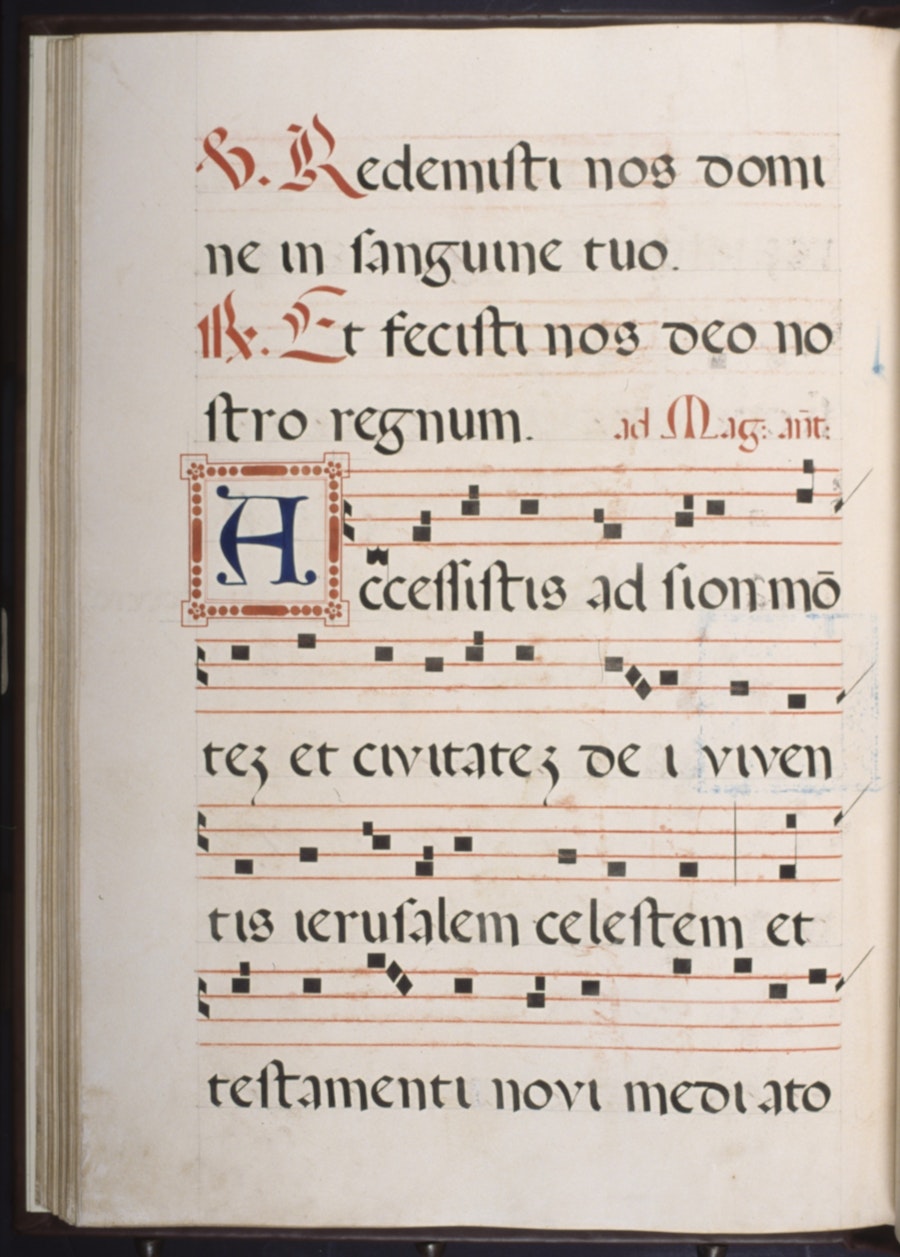 V. Redemisti nos domi
ne in sanguine tuo.
R. Et fecisti nos deo no
stro regnum. ad Mag: añt:
Accessistis ad sion mō
teʒ et civitateʒ de i viven
tis ierusalem celestem et
testamenti novi medi ato